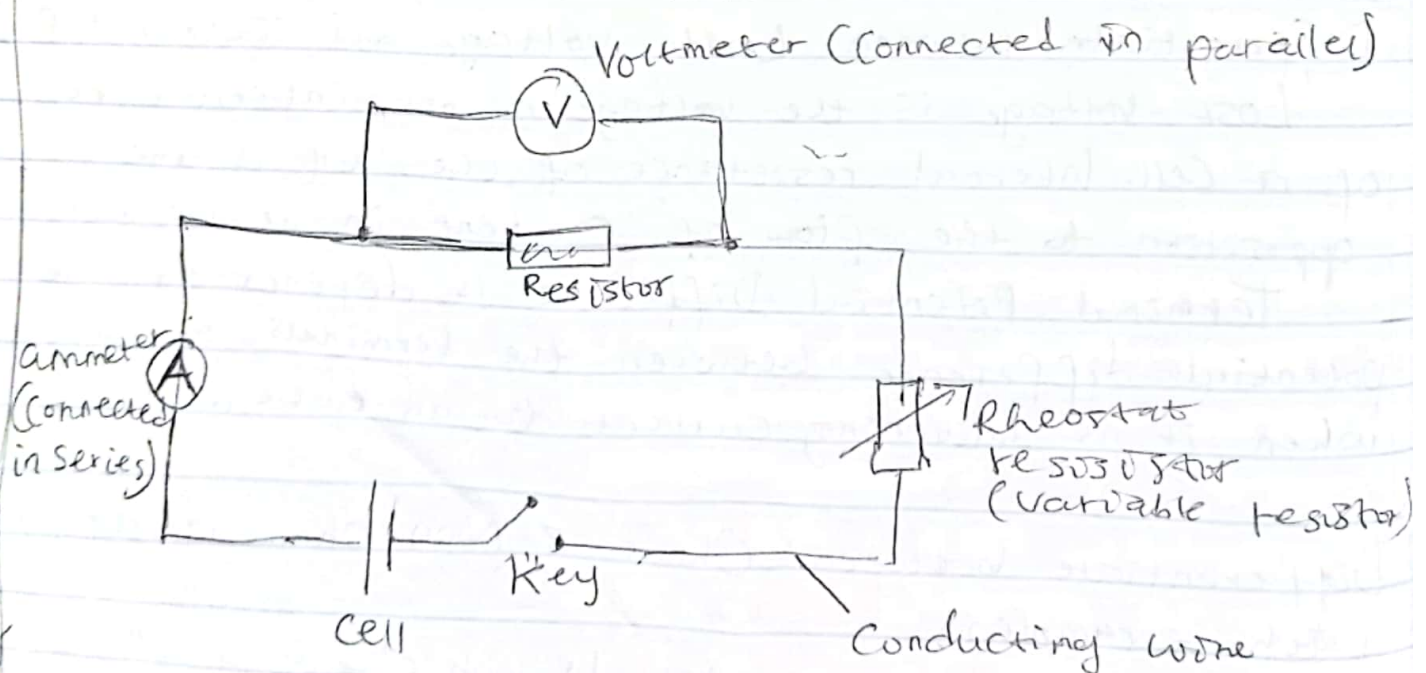 Voltmeter (Connected in parallel)
V
Resistor
ammeter
A
(Connected
in series)
Rheostat
(variable resistor)
Key
Cell
Conducting wire